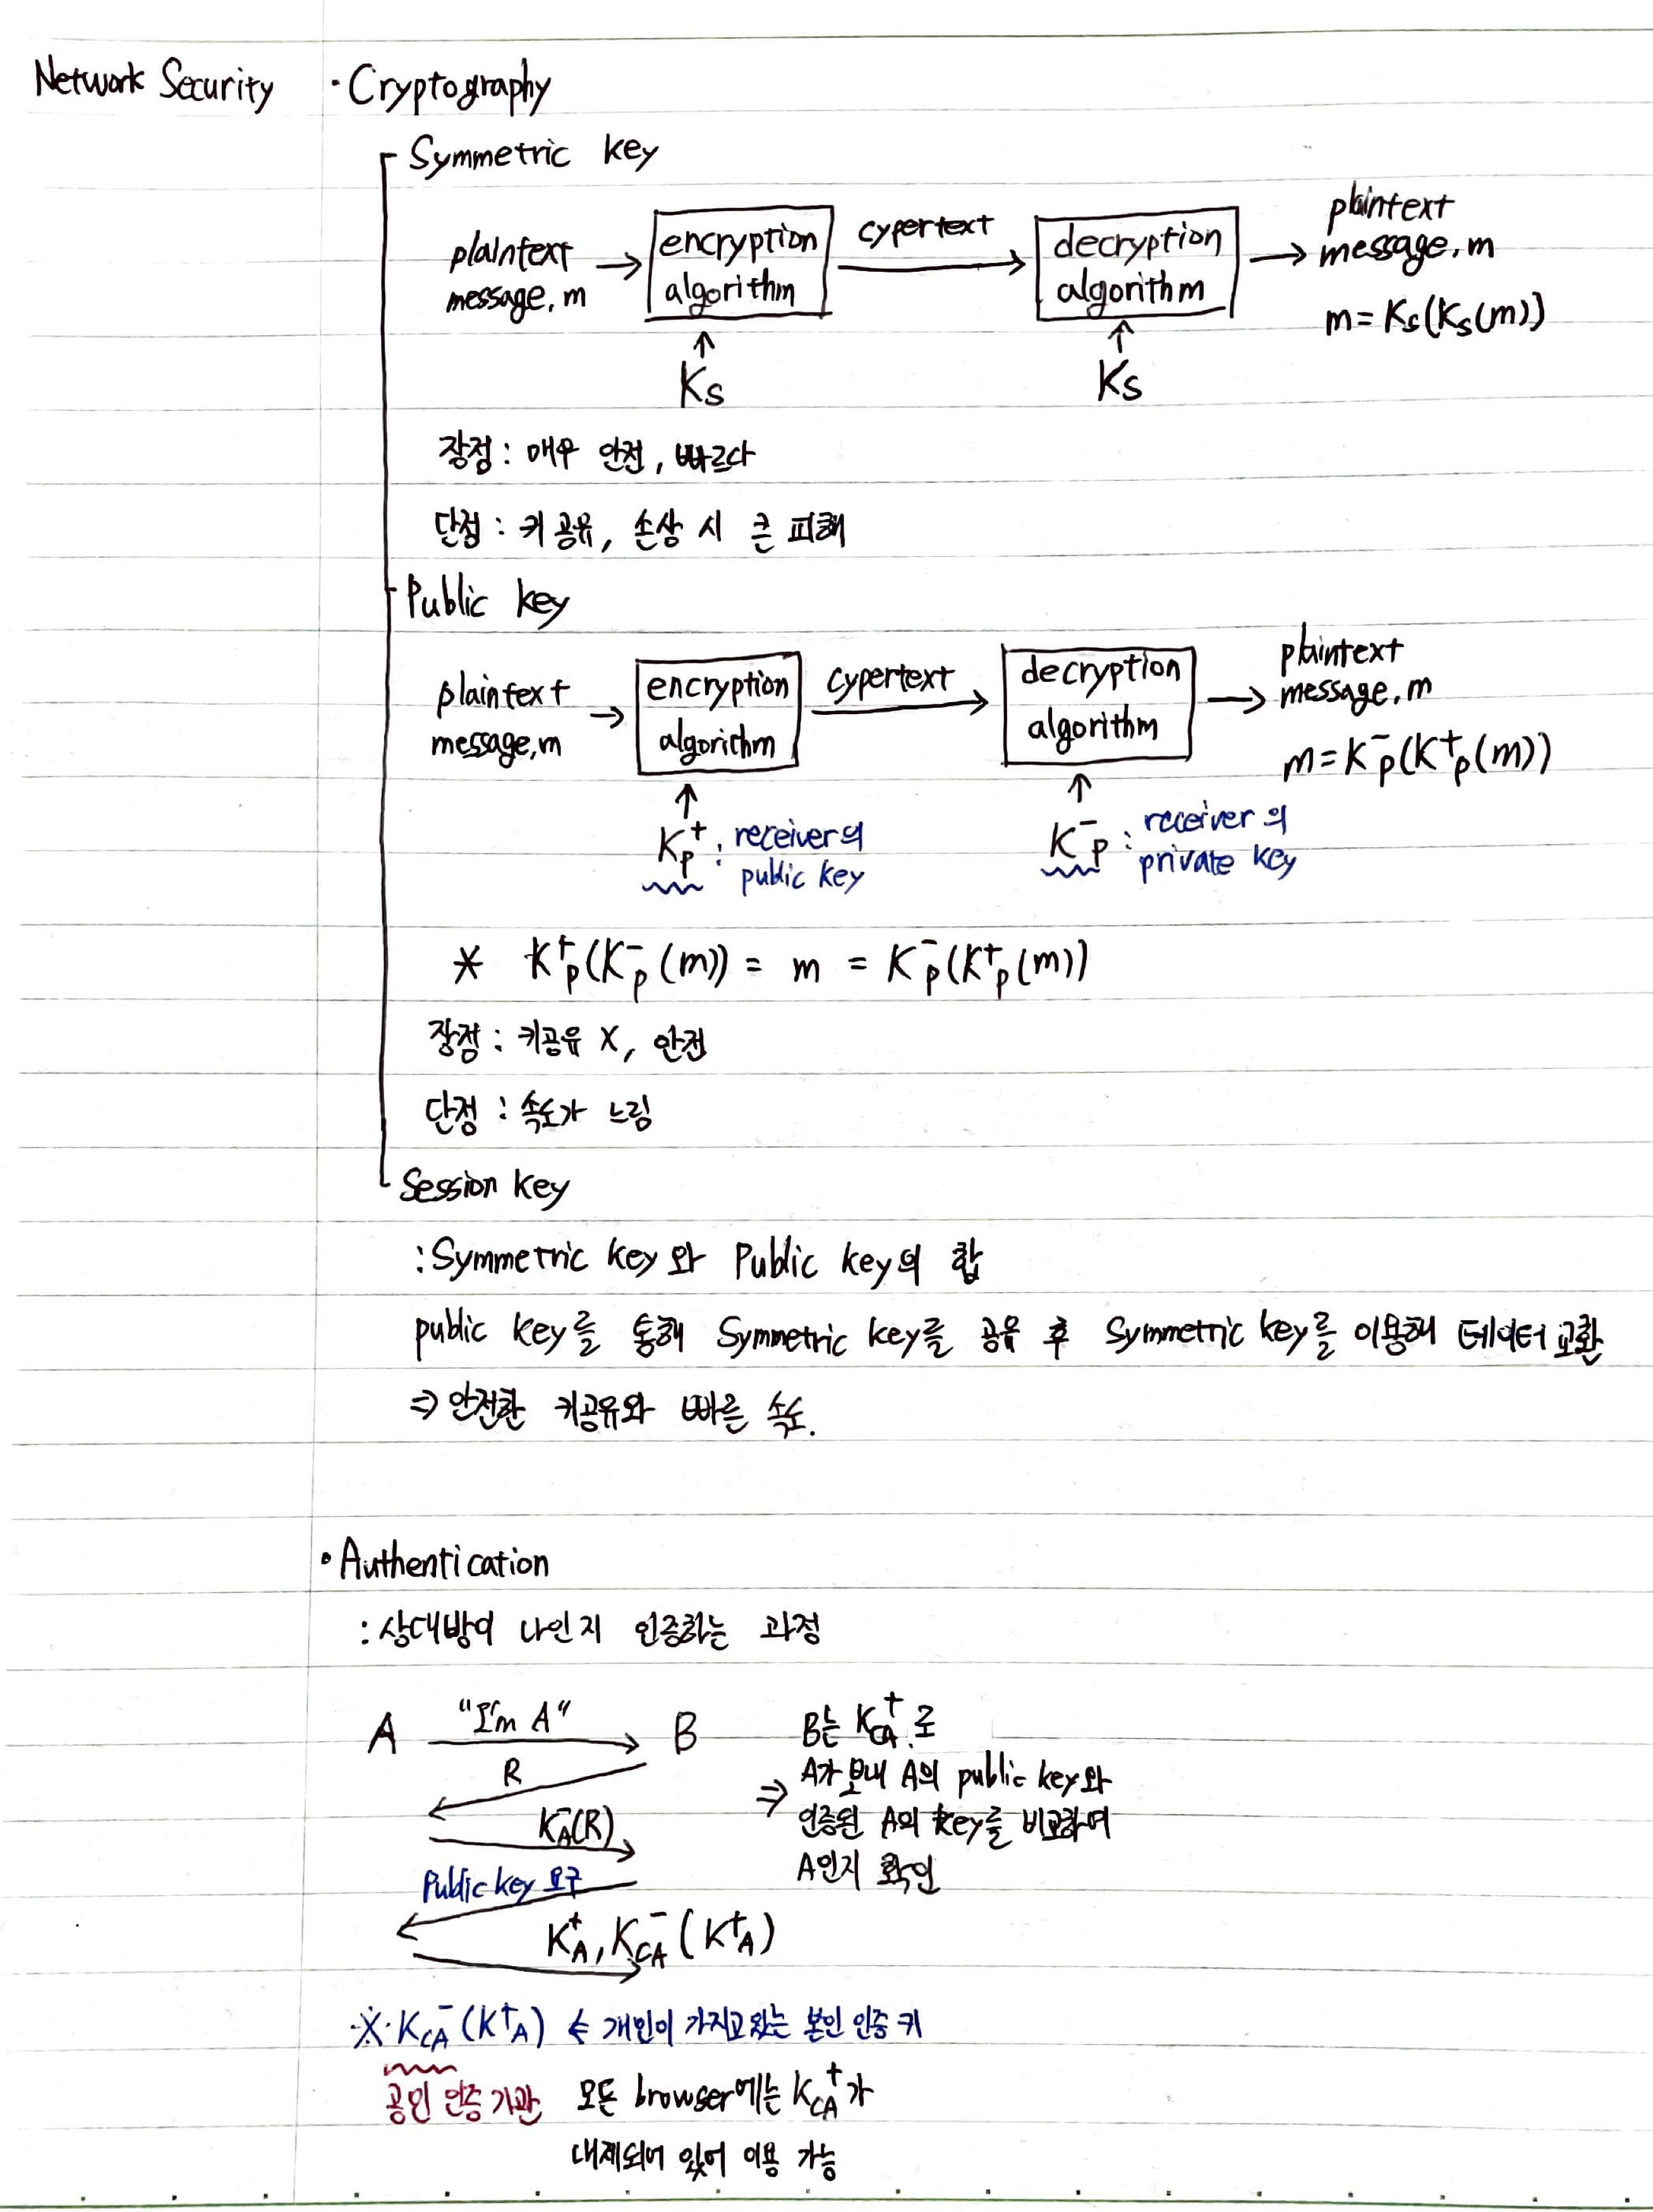 Network Security
· Cryptography
Symmetric key
plaintext message, m → encryption algorithm cypertext → decryption algorithm → plaintext message, m
m = Ks(Ks(m))
↑ Ks ↑ Ks
장점 : 매우 안전, 빠르다
단점 : 키 공유, 손상 시 큰 피해
Public key
plaintext message, m → encryption algorithm cypertext → decryption algorithm → plaintext message, m
m = K⁻p(K⁺p(m))
↑ Kp⁺ : receiver의 public key
↑ K⁻p : receiver의 private key
* K⁺p(K⁻p(m)) = m = K⁻p(K⁺p(m))
장점 : 키공유 X, 안전
단점 : 속도가 느림
Session key
: Symmetric key와 Public key의 합
public key를 통해 Symmetric key를 공유 후 Symmetric key를 이용해 데이터 교환
⇒ 안전한 키공유와 빠른 속도.
· Authentication
: 상대방이 나인지 인증하는 과정
A "I'm A" → B
R
K⁻A(R)
Public key 요구
K⁺A, K⁻CA(K⁺A)
B는 K⁺CA로
⇒ A가 보내 A의 public key와
인증된 A의 key를 비교하여
A인지 확인
※ K⁻CA(K⁺A) ← 개인이 가지고 있는 본인 인증 키
공인 인증 기관
모든 browser에는 K⁺CA가
내제되어 있어 이용 가능